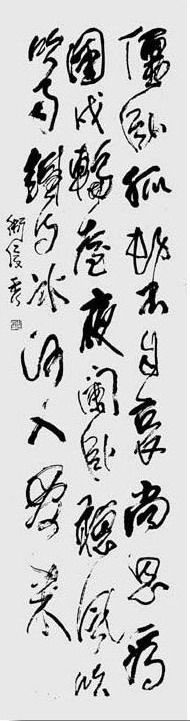 僵卧孤村不自哀尚思為
國戍輪臺夜闌卧聽風吹
吹雨鐵馬冰河入夢來
衛俊秀